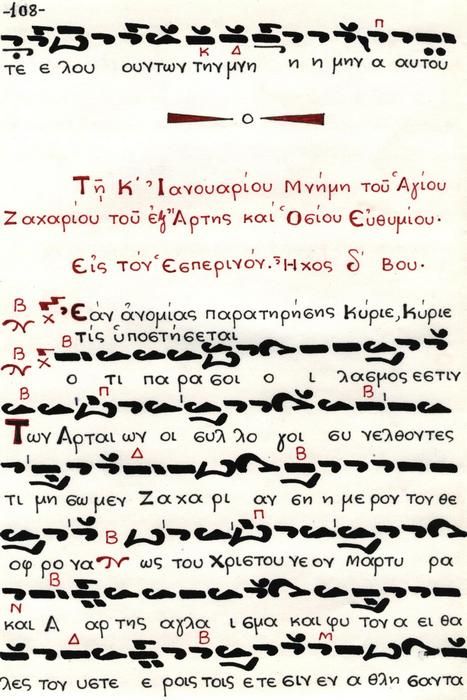 -108-
Π
Κ Δ
τε ε λου ουντων την μνη η η μην α αυτού
Τῇ Κ΄ Ἰανουαρίου Μνήμη τοῦ Ἁγίου
Ζαχαρίου τοῦ ἐξ Ἄρτης καί Ὁσίου Εὐθυμίου.
Εἰς τόν Ἑσπερινόν. Ἦχος δ΄ Βου.
Β χ Ἐάν ἀνομίας παρατηρήσης Κύριε, Κύριε
τίς ὑποστήσεται
Β χ Β
ο τι πα ρα σοι ο ι λασμος εστιν
Β Π Β
Των Αρται ων οι συλ λο γοι συ νελθοντες
Δ Β
τι μη σω μεν Ζαχα ρι αν ση η με ρον τον θε
Β Π
οφ ρο να ως του Χριστου νε ον μαρτυ ρα
Β
Ν
και Α αρ της αγλα ι σμα και φυ τον α ει θα
Δ Β Μ
λες τον υστε ε ροις τοις ετε σιν εν α θλη σαντα